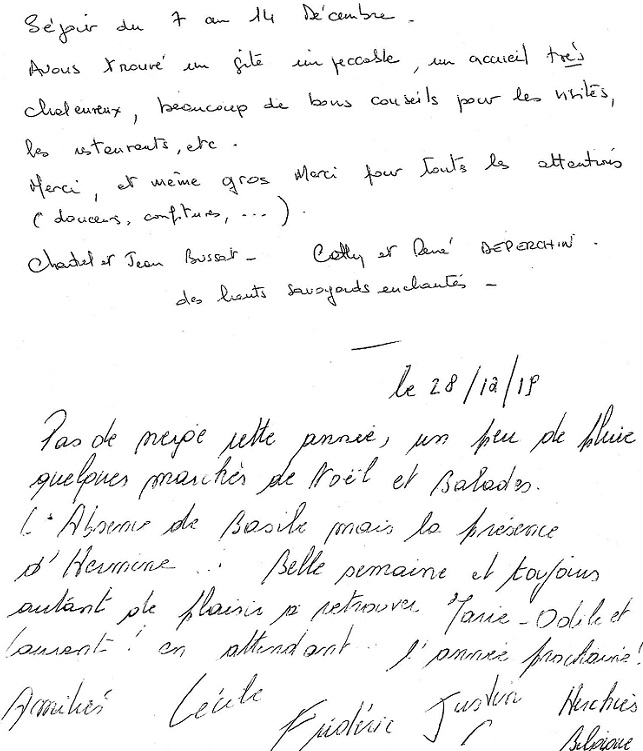 Séjour du 7 au 14 Décembre.
Avons trouvé un gîte impeccable, un accueil très
chaleureux, beaucoup de bons conseils pour les visites,
les restaurants, etc.
Merci, et même gros Merci pour touts les attentions
(douceurs, confitures, ...).
Chantal et Jean Bussat - Cathy et René DEPERCHIN.
des hauts savoyards enchantés -
le 28/12/19
Pas de neige cette année, un peu de pluie
quelques marchés de Noël et Balades.
L'Absence de Basile mais la présence
d'Hermine... Belle semaine et toujours
autant de plaisir à retrouver Marie-Odile et
Laurent! en attendant l'année prochaine!
Amitiés Cécile Frédéric Justin Herchies
Belgique